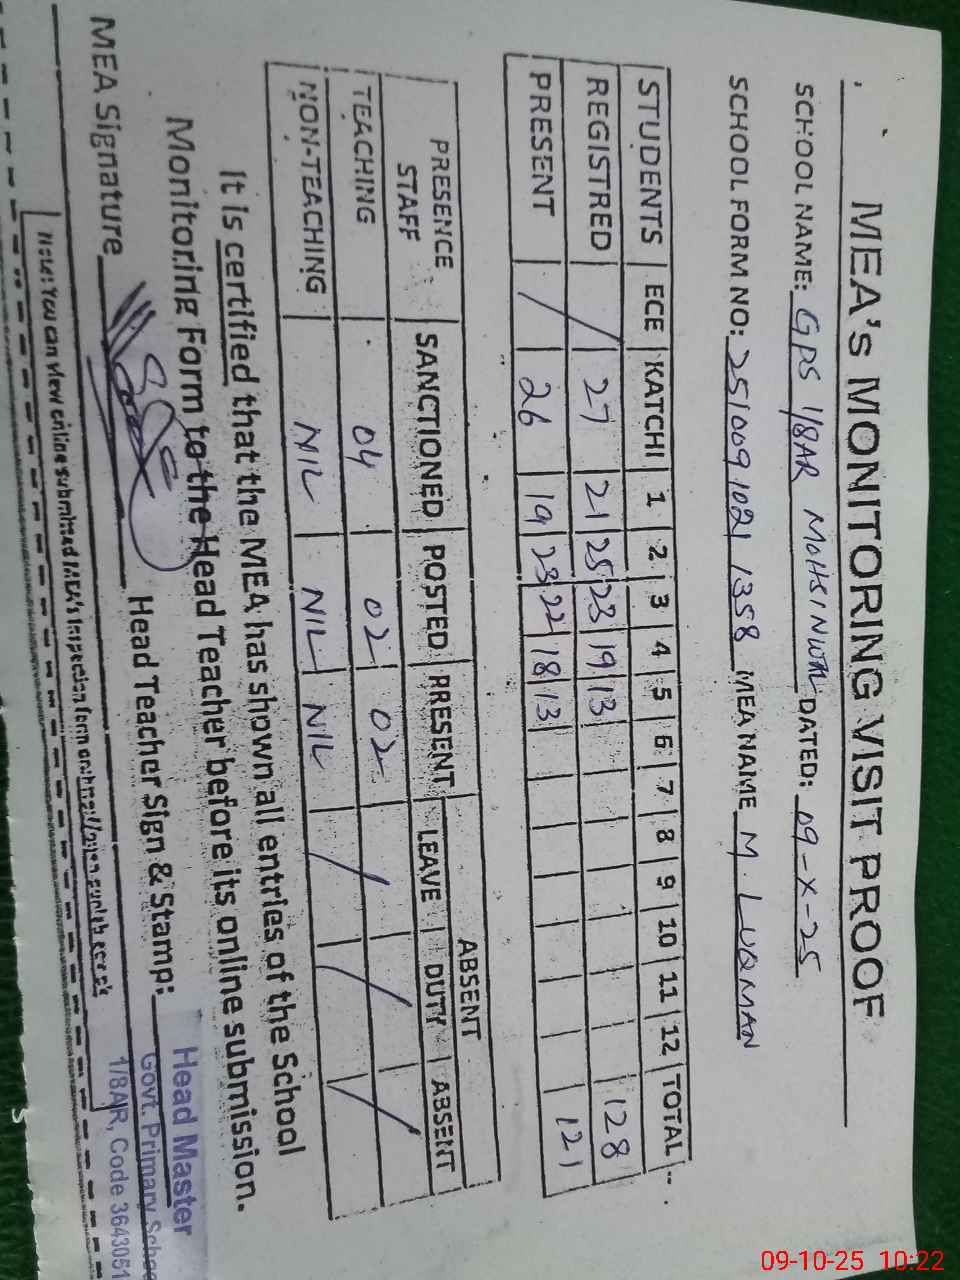 MEA's MONITORING VISIT PROOF
SCHOOL NAME: GPS 1/8AR MOHSINWAL DATED: 09-X-25
SCHOOL FORM NO: 2510091021 1358 MEA NAME M. LUQMAN
STUDENTS ECE KATCHI 1 2 3 4 5 6 7 8 9 10 11 12 TOTAL
REGISTRED / 27 21 25 23 19 13 128
PRESENT / 26 19 23 22 18 13 121
PRESENCE STAFF SANCTIONED POSTED PRESENT ABSENT
LEAVE DUTY ABSENT
TEACHING 04 02 02 / / /
NON-TEACHING NIL NIL NIL
It is certified that the MEA has shown all entries of the School
Monitoring Form to the Head Teacher before its online submission.
MEA Signature Head Teacher Sign & Stamp:
Head Master
Govt. Primary School
1/8AR, Code 3643051
Note: You can view online submitted MEA's Inspection form on
09-10-25 10:22